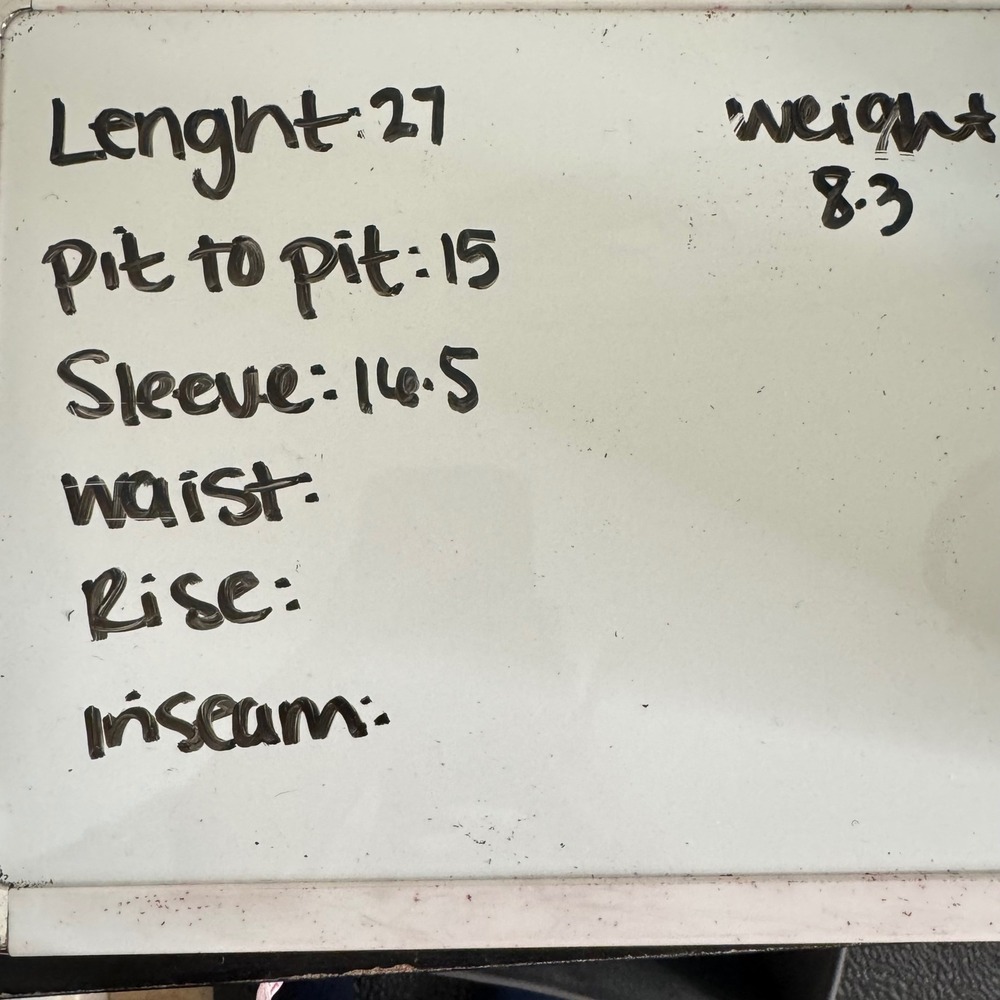 Lenght: 27
pit to pit: 15
Sleeve: 16.5
waist:
Rise:
inseam:
weight
8.3